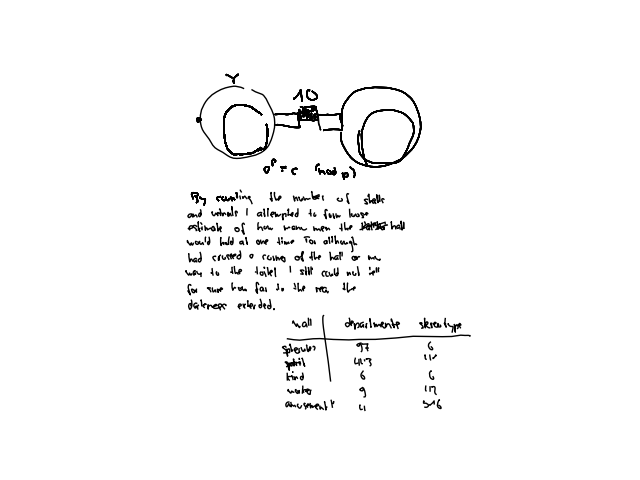 Y
10
By counting the number of stalls
and urinals I attempted to form loose
estimate of how many men the hall
would hold at one time For although
had crossed a corner of the hall on my
way to the toilet I still could not tell
for sure how far to the rear the
darkness extended.
wall departments stereotype
97 6
413
kind 6 6
9 117
amusement 4